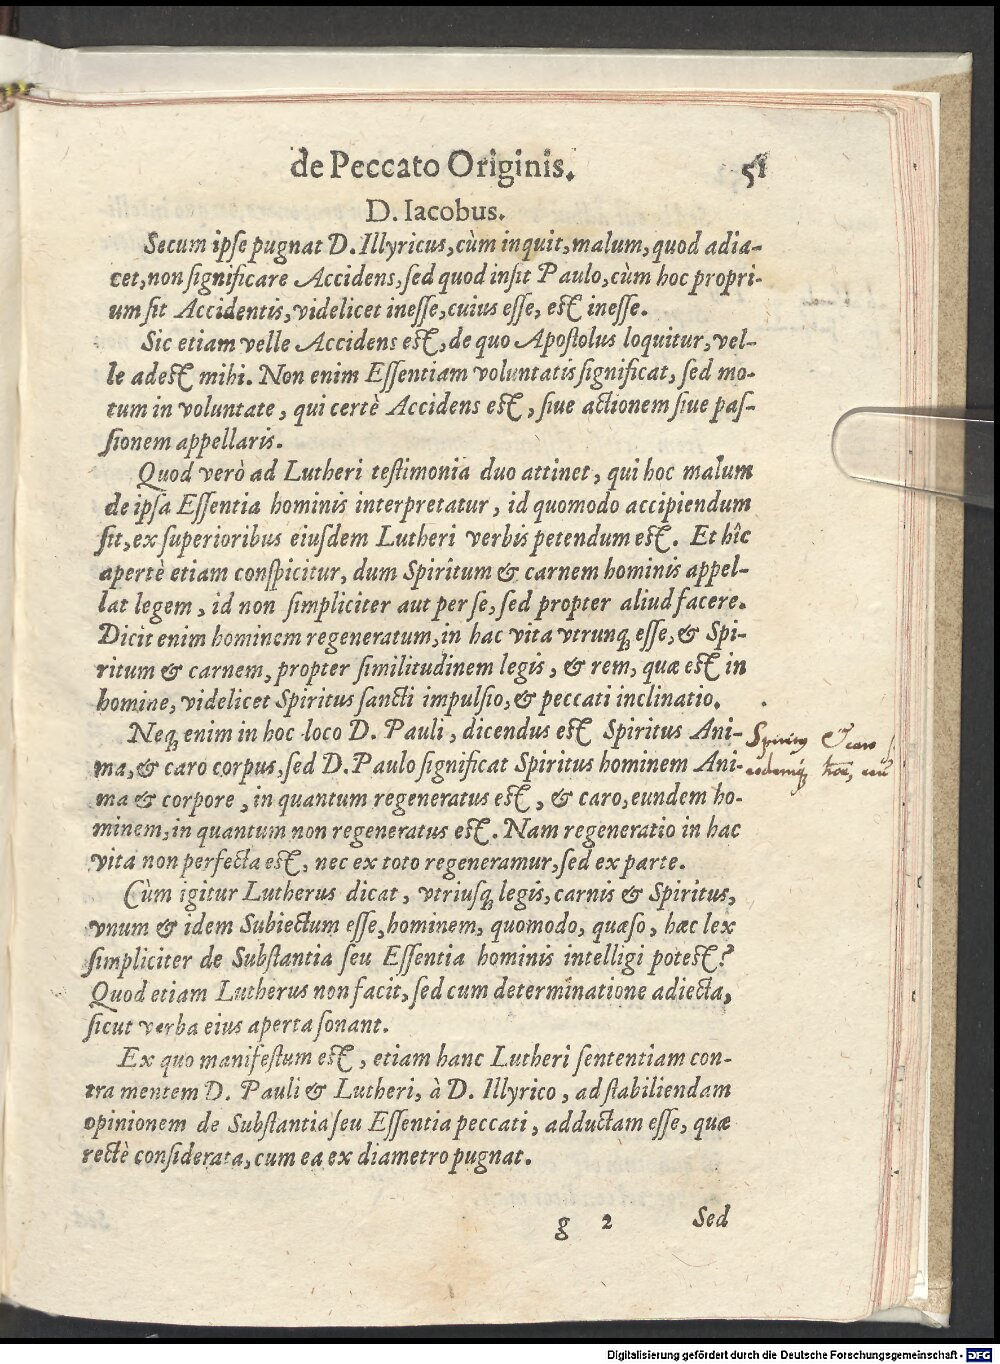 de Peccato Originis. 51
D. Iacobus.
Secum ipſe pugnat D. Illyricus, cùm inquit, malum, quod adia-
cet, non ſignificare Accidens, ſed quod inſit Paulo, cùm hoc propri-
um ſit Accidentis, videlicet ineſſe, cuius eſſe, eſt ineſſe.
Sic etiam velle Accidens eſt, de quo Apoſtolus loquitur, vel-
le adeſt mihi. Non enim Eſſentiam voluntatis ſignificat, ſed mo-
tum in voluntate, qui certè Accidens eſt, ſiue actionem ſiue paſ-
ſionem appellaris.
Quod verò ad Lutheri teſtimonia duo attinet, qui hoc malum
de ipſa Eſſentia hominis interpretatur, id quomodo accipiendum
ſit, ex ſuperioribus eiuſdem Lutheri verbis petendum eſt. Et hîc
apertè etiam conſpicitur, dum Spiritum & carnem hominis appel-
lat legem, id non ſimpliciter aut per ſe, ſed propter aliud facere.
Dicit enim hominem regeneratum, in hac vita vtrunq; eſſe, & Spi-
ritum & carnem, propter ſimilitudinem legis, & rem, quæ eſt in
homine, videlicet Spiritus ſancti impulſio, & peccati inclinatio.
Neq; enim in hoc loco D. Pauli, dicendus eſt Spiritus Ani-
ma, & caro corpus, ſed D. Paulo ſignificat Spiritus hominem Ani-
ma & corpore, in quantum regeneratus eſt, & caro, eundem ho-
minem, in quantum non regeneratus eſt. Nam regeneratio in hac
vita non perfecta eſt, nec ex toto regeneramur, ſed ex parte.
Spiritus & caro
Cùm igitur Lutherus dicat, vtriuſq; legis, carnis & Spiritus,
vnum & idem Subiectum eſſe, hominem, quomodo, quæſo, hæc lex
ſimpliciter de Subſtantia ſeu Eſſentia hominis intelligi poteſt?
Quod etiam Lutherus non facit, ſed cum determinatione adiecta,
ſicut verba eius aperta ſonant.
Ex quo manifeſtum eſt, etiam hanc Lutheri ſententiam con-
tra mentem D. Pauli & Lutheri, à D. Illyrico, ad ſtabiliendam
opinionem de Subſtantia ſeu Eſſentia peccati, adductam eſſe, quæ
rectè conſiderata, cum ea ex diametro pugnat.
g 2 Sed
Digitalisierung gefördert durch die Deutsche Forschungsgemeinschaft - DFG